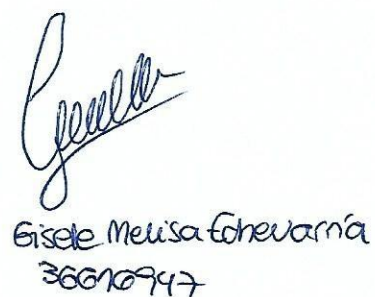 Gisele Melisa Echevarría
36616947